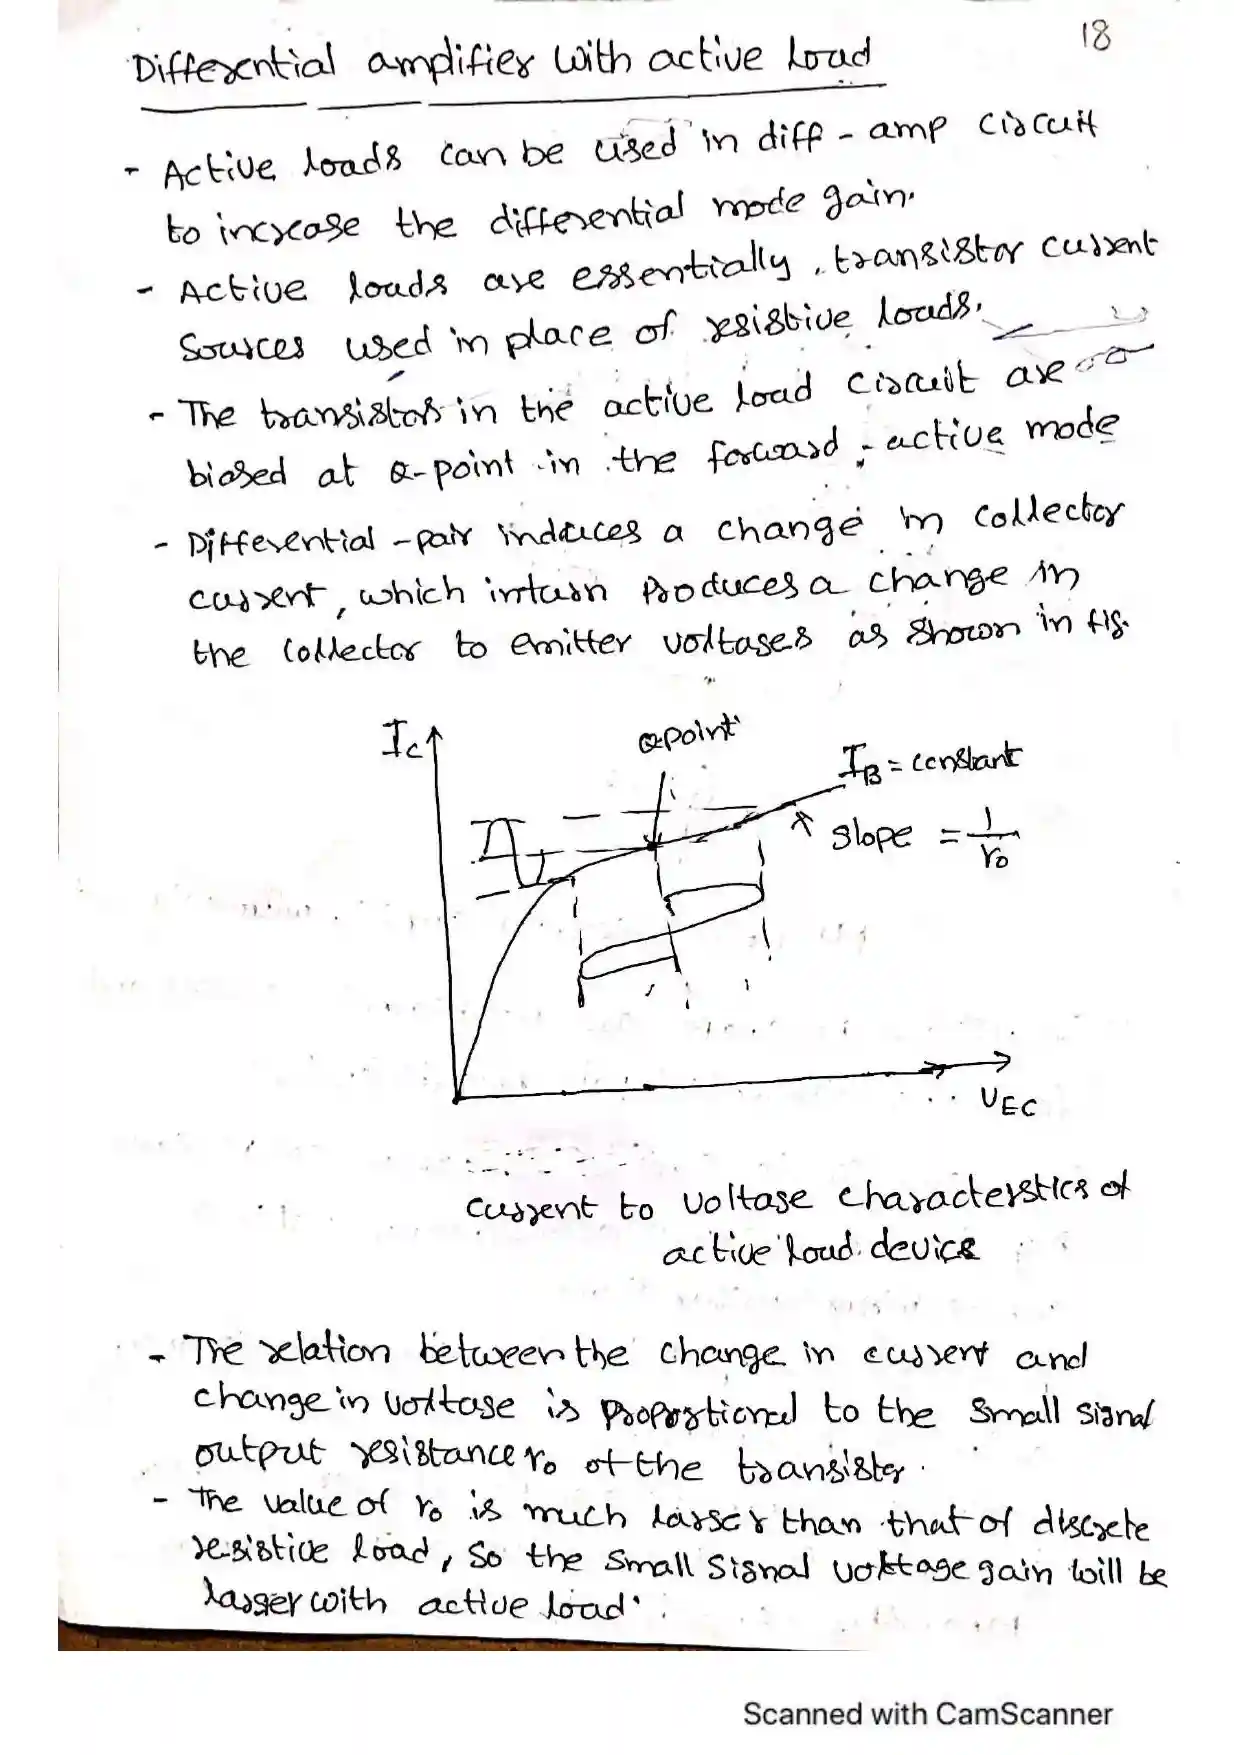 18
Differential amplifier with active load
- Active loads can be used in diff-amp circuit
to increase the differential mode gain.
- Active loads are essentially, transistor current
Sources used in place of resistive loads.
- The transistors in the active load circuit are
biased at Q-point in the forward-active mode
- Differential-pair induces a change in collector
current, which inturn produces a change in
the collector to emitter voltages as shown in fig.
Ic
Q-point
IB = constant
slope = 1/ro
VEC
current to voltage characterstics of
active load device
- The relation between the change in current and
change in voltage is proportional to the small signal
output resistance ro of the transistor.
- The value of ro is much larger than that of discrete
resistive load, so the small signal voltage gain will be
larger with active load.
Scanned with CamScanner